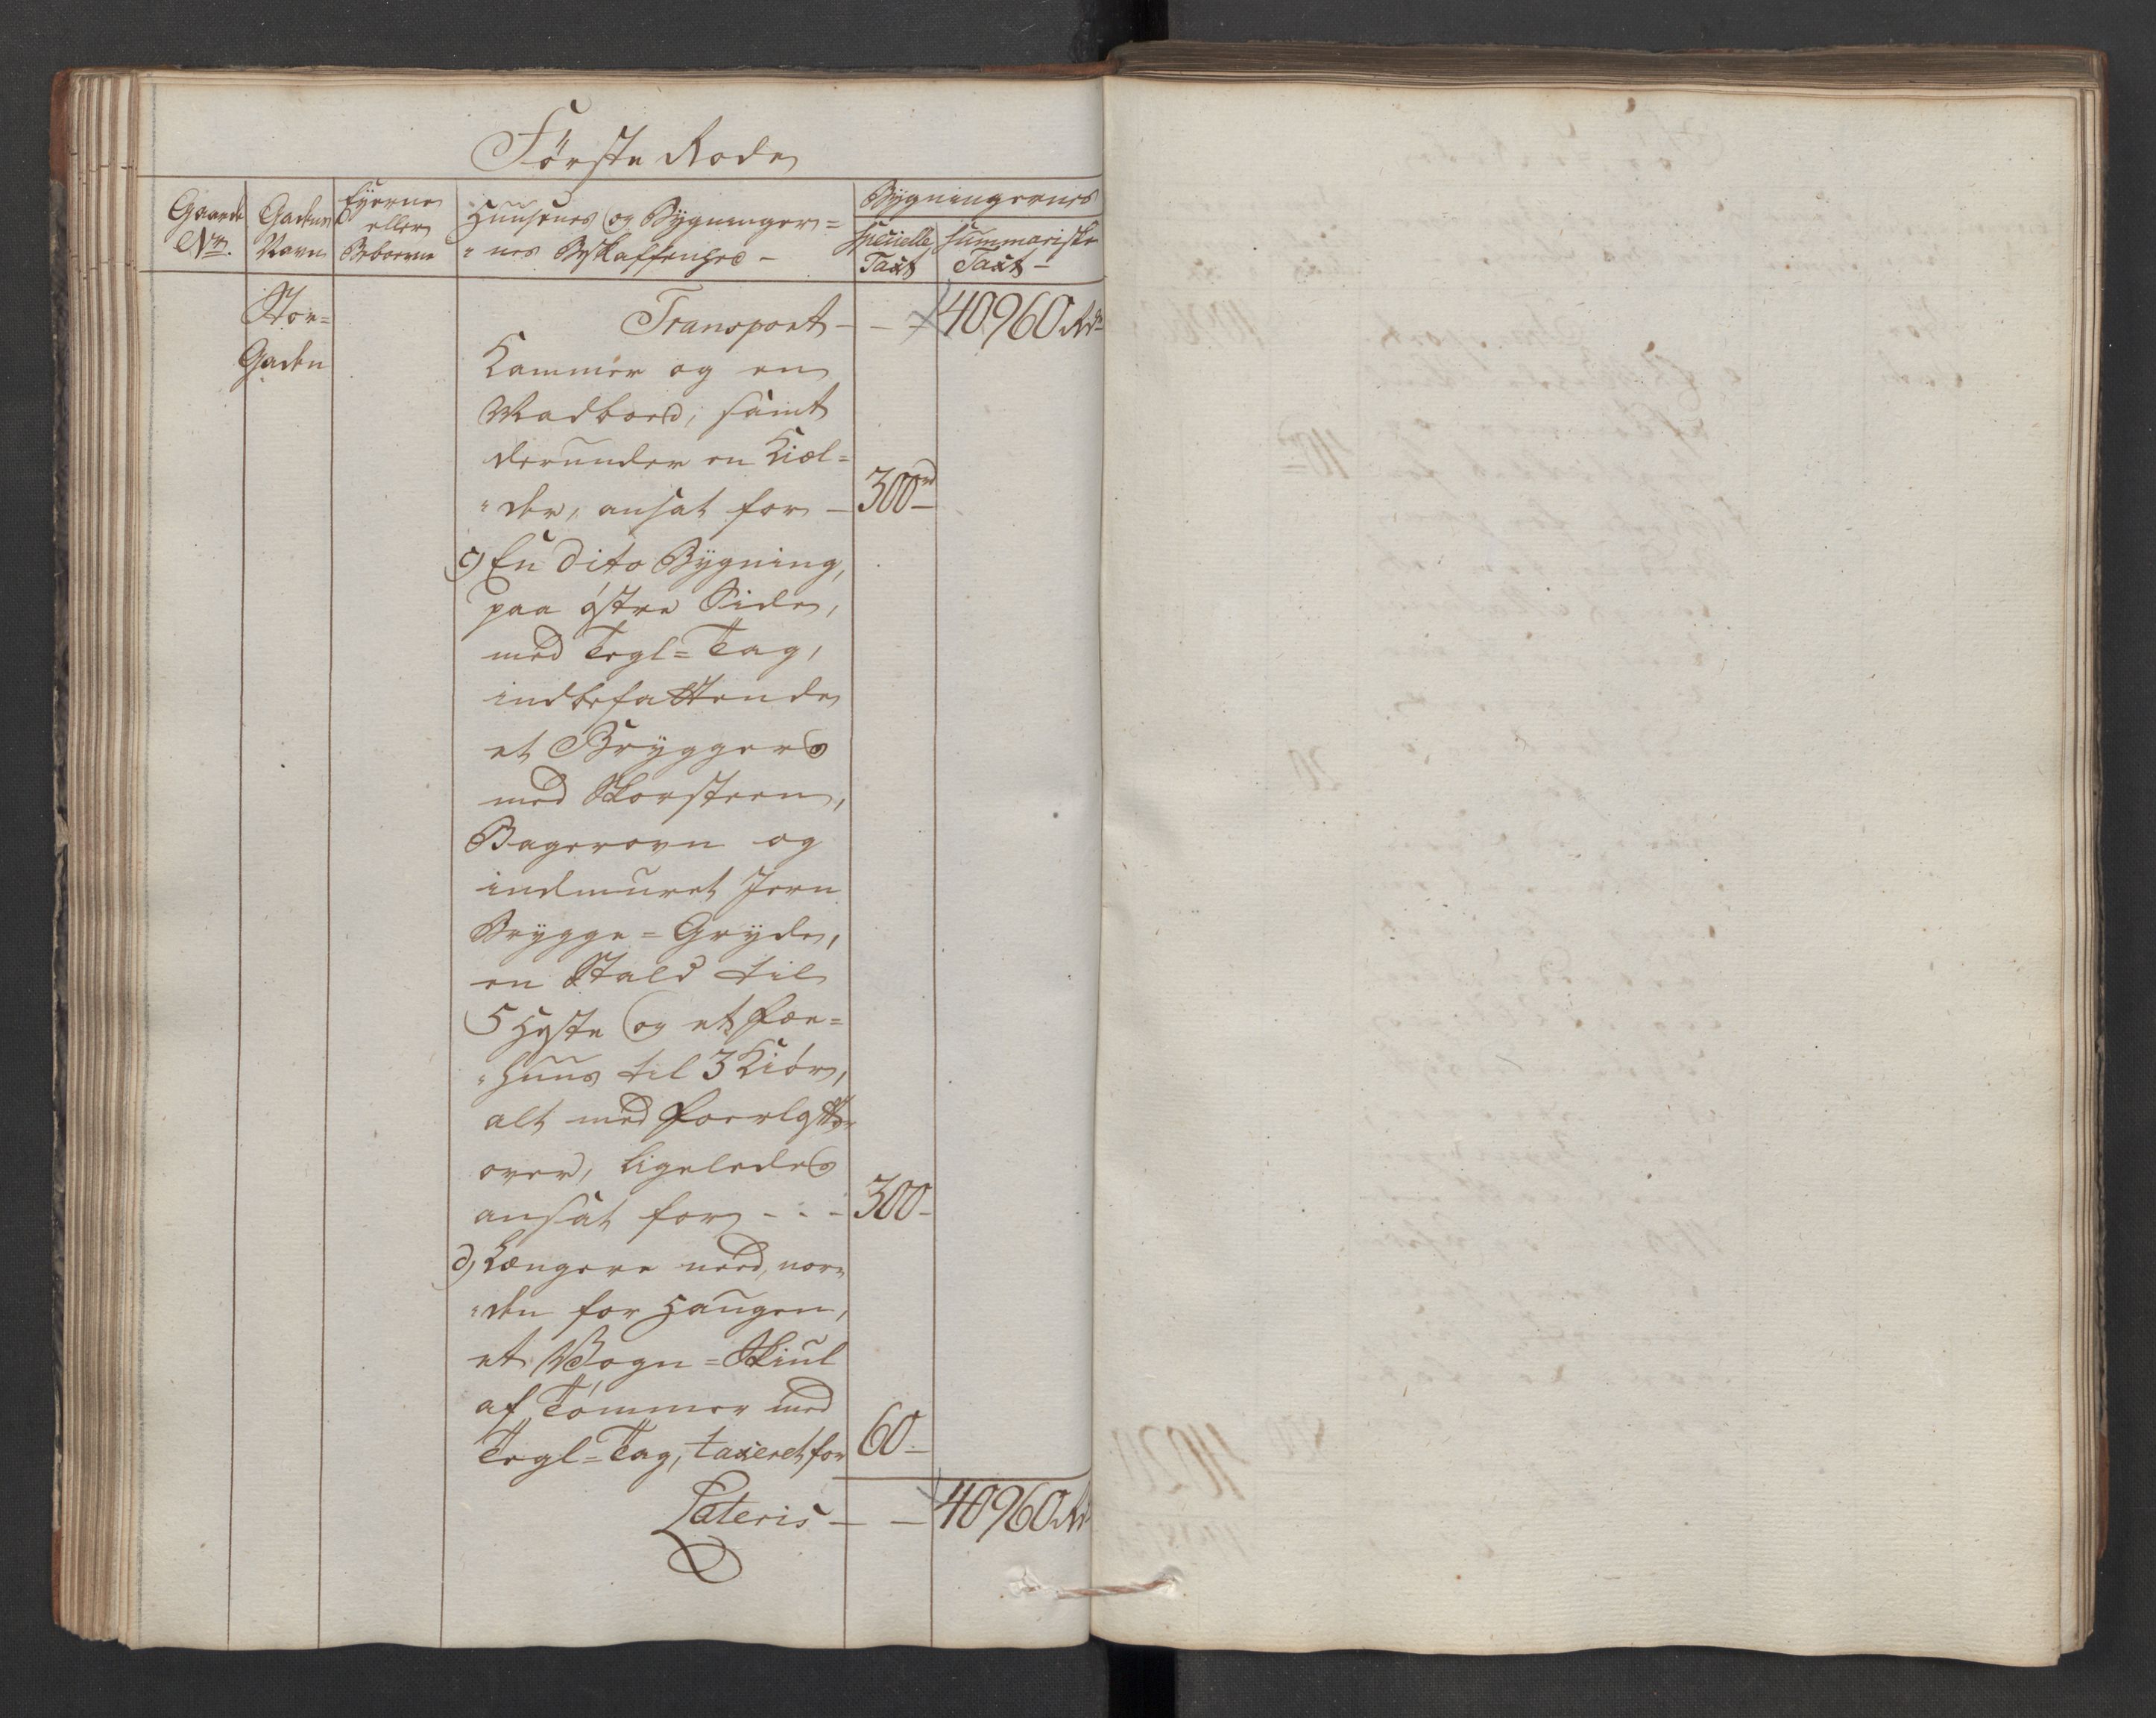 Første Rode
Gaardens No.
Gadens Navn
Ejerne eller Beboerne
Huusenes og Bygninger=
"nes Beskaffenhed -
Bygningernes
specielle Taxt
summariske Taxt -
Stor=
Gaden
Transport - - - 40960 Rd
Kammer og en
Madboed, samt
derunder en Kiæl=
"der, ansat for - 300 rd
c) En dito Bygning,
paa østre Side,
med Tegl=Tag,
indbefattende
et Bryggers
med Skorsteen,
Bagerovn og
indmuret Jern
Brygge=Gryde,
en Stald til
5 Heste og et Fæe=
"huus til 3 Kiør,
alt med Foerlofter
over, ligeledes
ansat for - - - 300 -
d) Længere need, nor=
"den for Haugen,
et Vogn=Skiul
af Tømmer med
Tegl=Tag, taxeret for 60 -
Lateris - - 40960 Rd